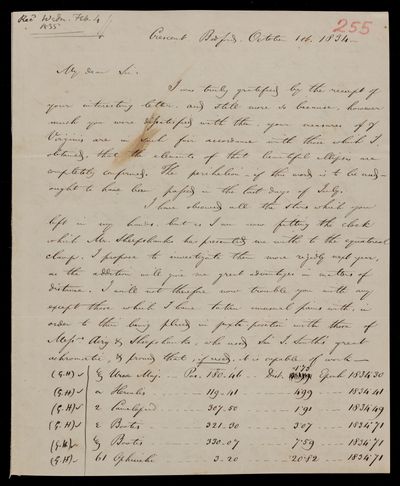 Recd Wedn. Feb. 4
1835
255
Crescent, Bedford, October 1st. 1834
My dear Sir,
I was truly gratified by the receipt of
your interesting letter, and still more so because, however
much you were dissatisfied with them, your measures of γ
Virginis are in such fair accordance with those which I
obtained, that the elements of that beautiful ellipsis are
completely confirmed. The perihelion - if the word is to be used -
ought to have been passed in the last days of July.
I have observed all the stars which you
left in my hands, but as I am now putting the clock
which Mr. Sheepshanks has presented me with to the equatoreal
clamp, I propose to investigate them more rigidly next year,
as the addition will give me great advantages in matters of
distance. I will not therefore now trouble you with any
except those which I have taken unusual pains with, in
order to their being placed in juxta-position with those of
Messrs Airy & Sheepshanks, who used Sir J. South's great
achromatic, & proved that, if used, it is capable of work —
(S.H) ξ Ursæ Maj. .. Pos. 180.46 .. Dist. 1.78 Epoch 1834.30
(S.H) α Herculis .. 119.41 .. 4.99 .. 1834.41
(S.H) 2 Camelopard. .. 307.50 .. 1.91 .. 1834.49
(S.H) ε Bootis .. 321.30 .. 3.07 .. 1834.71
(S.H) ξ Bootis .. 330.07 .. 7.59 .. 1834.71
(S.H) 61 Ophiuchi .. 3.20 .. 20.82 .. 1834.71